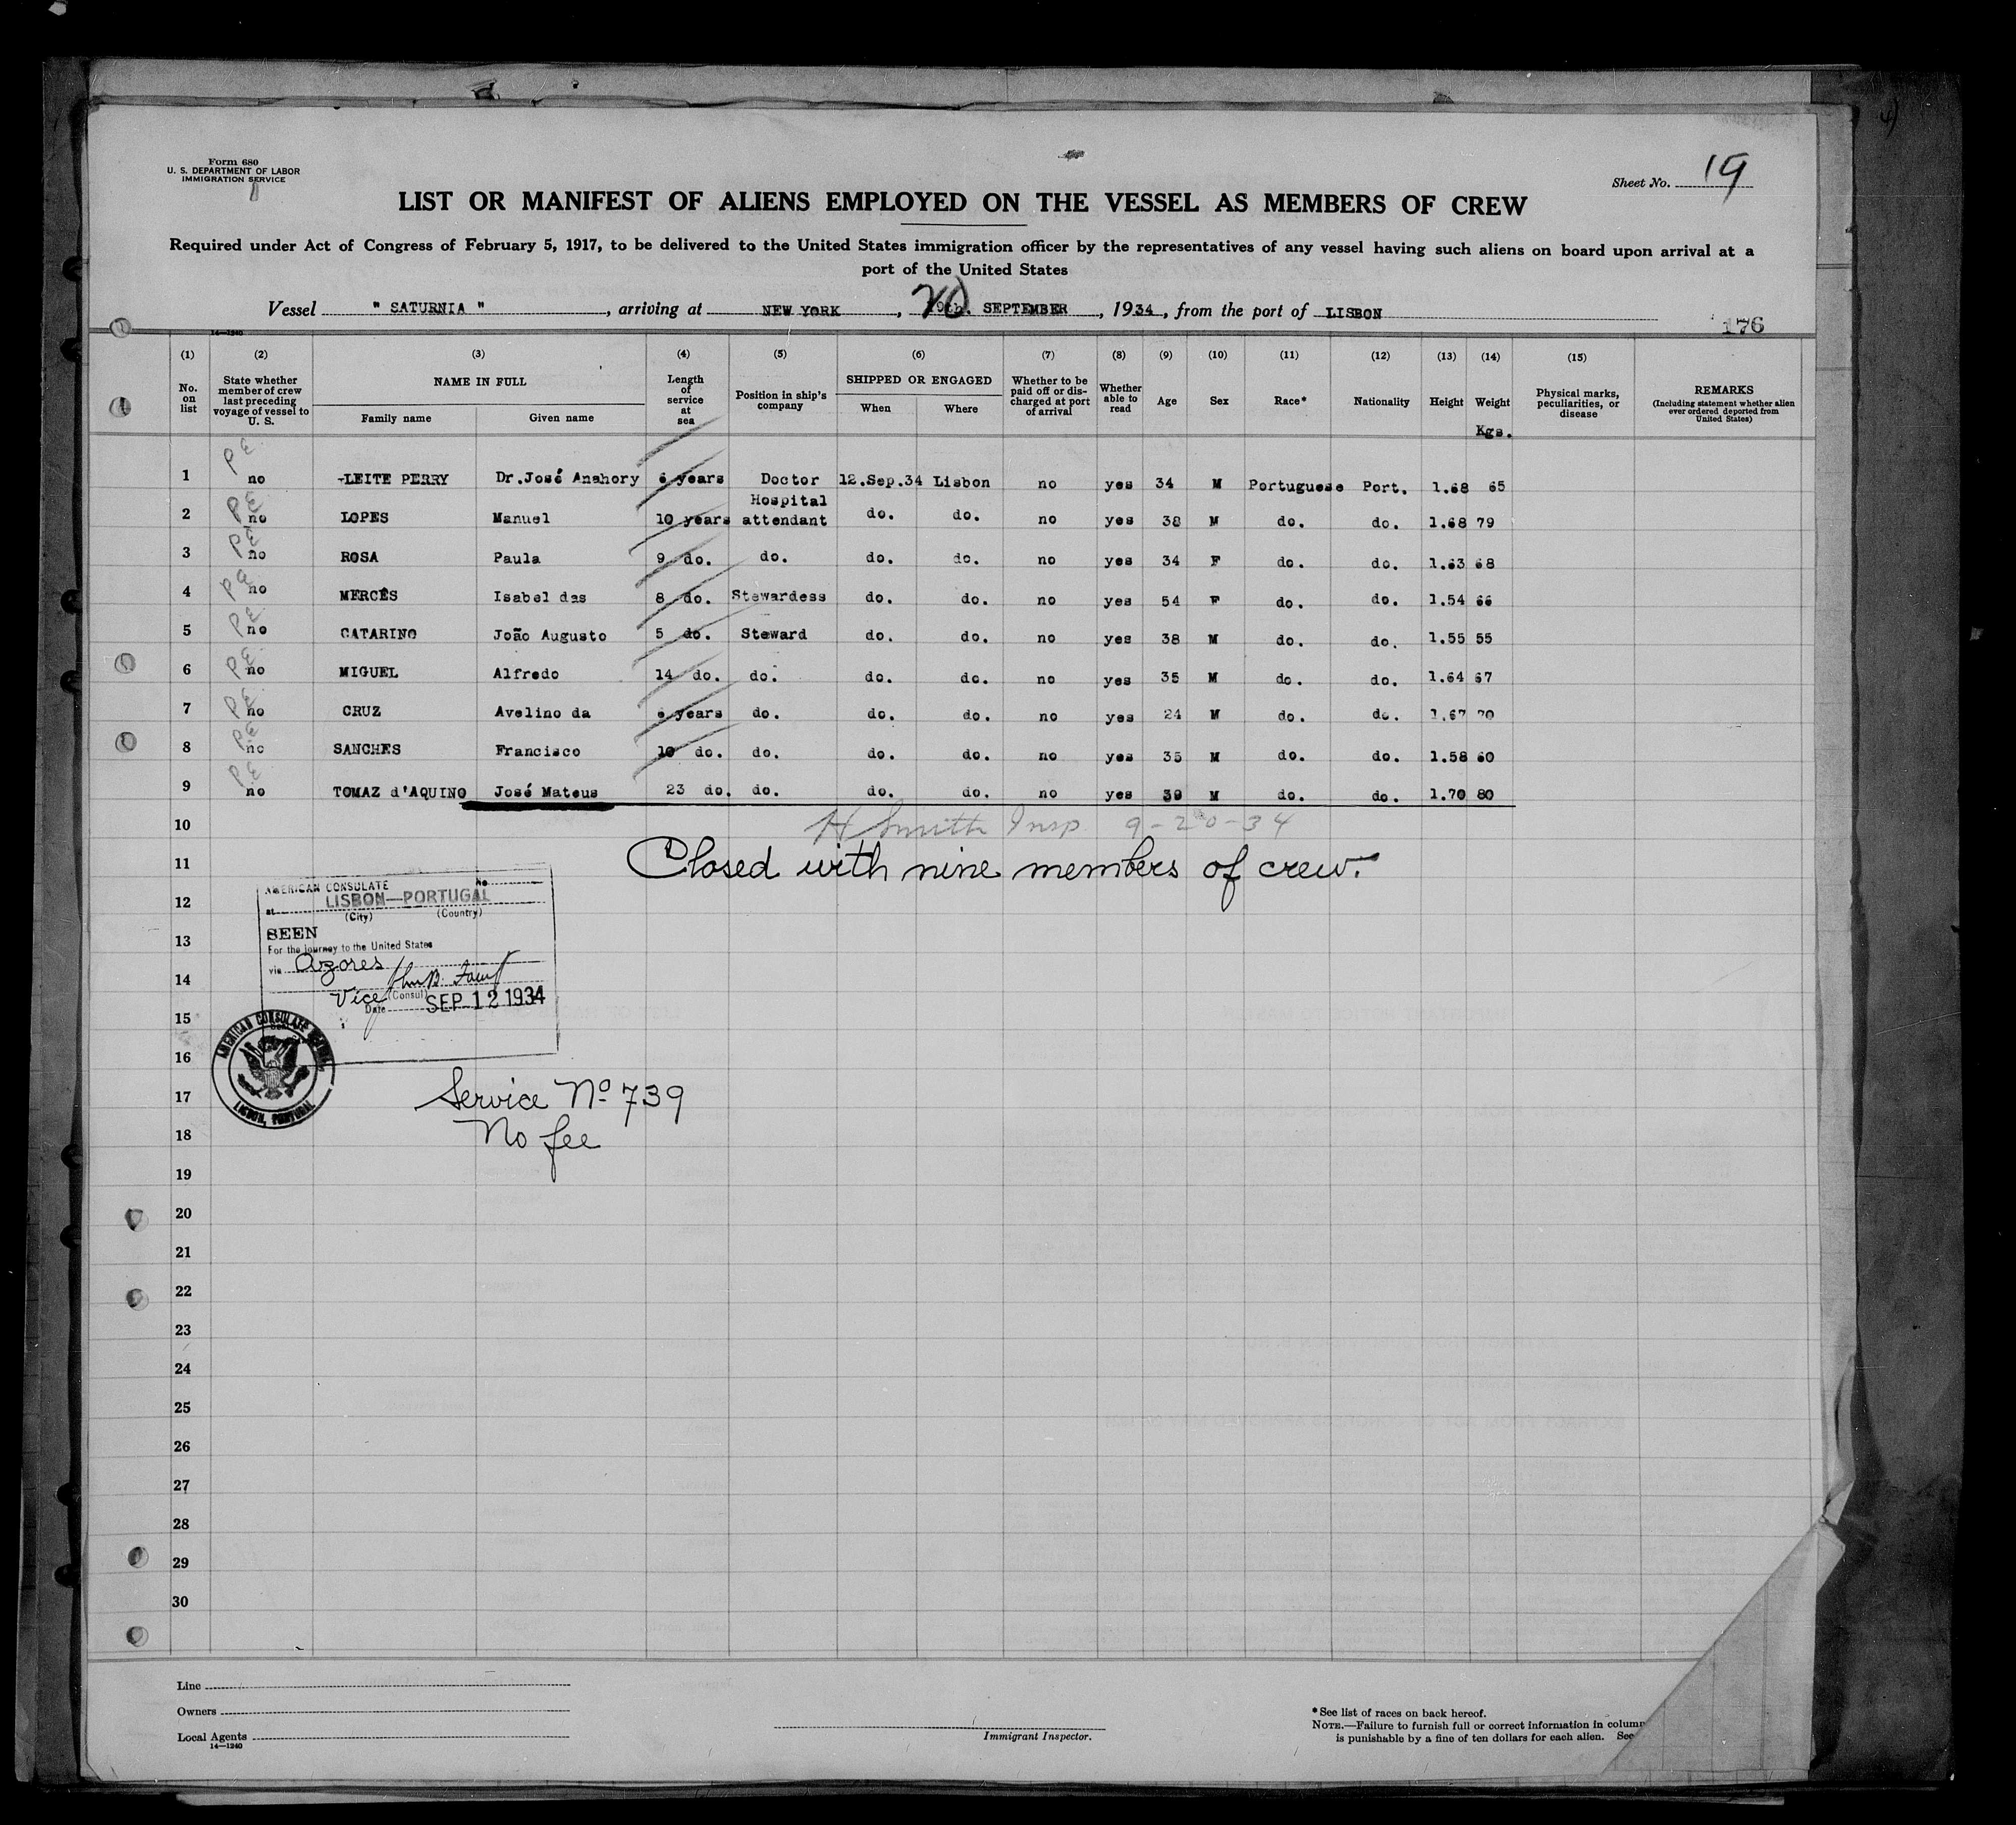 Form 680
U. S. DEPARTMENT OF LABOR
IMMIGRATION SERVICE
Sheet No. 19
LIST OR MANIFEST OF ALIENS EMPLOYED ON THE VESSEL AS MEMBERS OF CREW
Required under Act of Congress of February 5, 1917, to be delivered to the United States immigration officer by the representatives of any vessel having such aliens on board upon arrival at a
port of the United States
Vessel " SATURNIA ", arriving at NEW YORK, 20 SEPTEMBER, 1934, from the port of LISBON
176
14—1240
(1) (2) (3) (4) (5) (6) (7) (8) (9) (10) (11) (12) (13) (14) (15)
No. on list
State whether member of crew last preceding voyage of vessel to U. S.
NAME IN FULL
Family name Given name
Length of service at sea
Position in ship's company
SHIPPED OR ENGAGED
When Where
Whether to be paid off or discharged at port of arrival
Whether able to read
Age
Sex
Race*
Nationality
Height
Weight
Kgs.
Physical marks, peculiarities, or disease
REMARKS
(Including statement whether alien ever ordered deported from United States)
1 PE no LEITE PERRY Dr.José Anahory 6 years Doctor 12.Sep.34 Lisbon no yes 34 M Portuguese Port. 1.68 65
2 PE no LOPES Manuel 10 years Hospital attendant do. do. no yes 38 M do. do. 1.68 79
3 PE no ROSA Paula 9 do. do. do. do. no yes 34 F do. do. 1.63 68
4 no MERCÊS Isabel das 8 do. Stewardess do. do. no yes 54 F do. do. 1.54 66
5 PE no CATARINO João Augusto 5 do. Steward do. do. no yes 38 M do. do. 1.55 55
6 PE no MIGUEL Alfredo 14 do. do. do. do. no yes 35 M do. do. 1.64 67
7 PE no CRUZ Avelino da 6 years do. do. do. no yes 24 M do. do. 1.67 70
8 PE no SANCHES Francisco 10 do. do. do. do. no yes 35 M do. do. 1.58 60
9 PE no TOMAZ d'AQUINO José Mateus 23 do. do. do. do. no yes 39 M do. do. 1.70 80
10
H Smith Insp 9-20-34
11
Closed with nine members of crew.
12
13
14
15
16
17
18
19
20
21
22
23
24
25
26
27
28
29
30
AMERICAN CONSULATE No
at LISBON—PORTUGAL
(City) (Country)
SEEN
For the journey to the United States
via Azores
Vice (Consul)
Date SEP 12 1934
AMERICAN CONSULATE GENERAL
LISBON, PORTUGAL
Service Nº 739
No fee
Line
Owners
Local Agents
14—1240
Immigrant Inspector.
*See list of races on back hereof.
NOTE.—Failure to furnish full or correct information in colum
is punishable by a fine of ten dollars for each alien. See